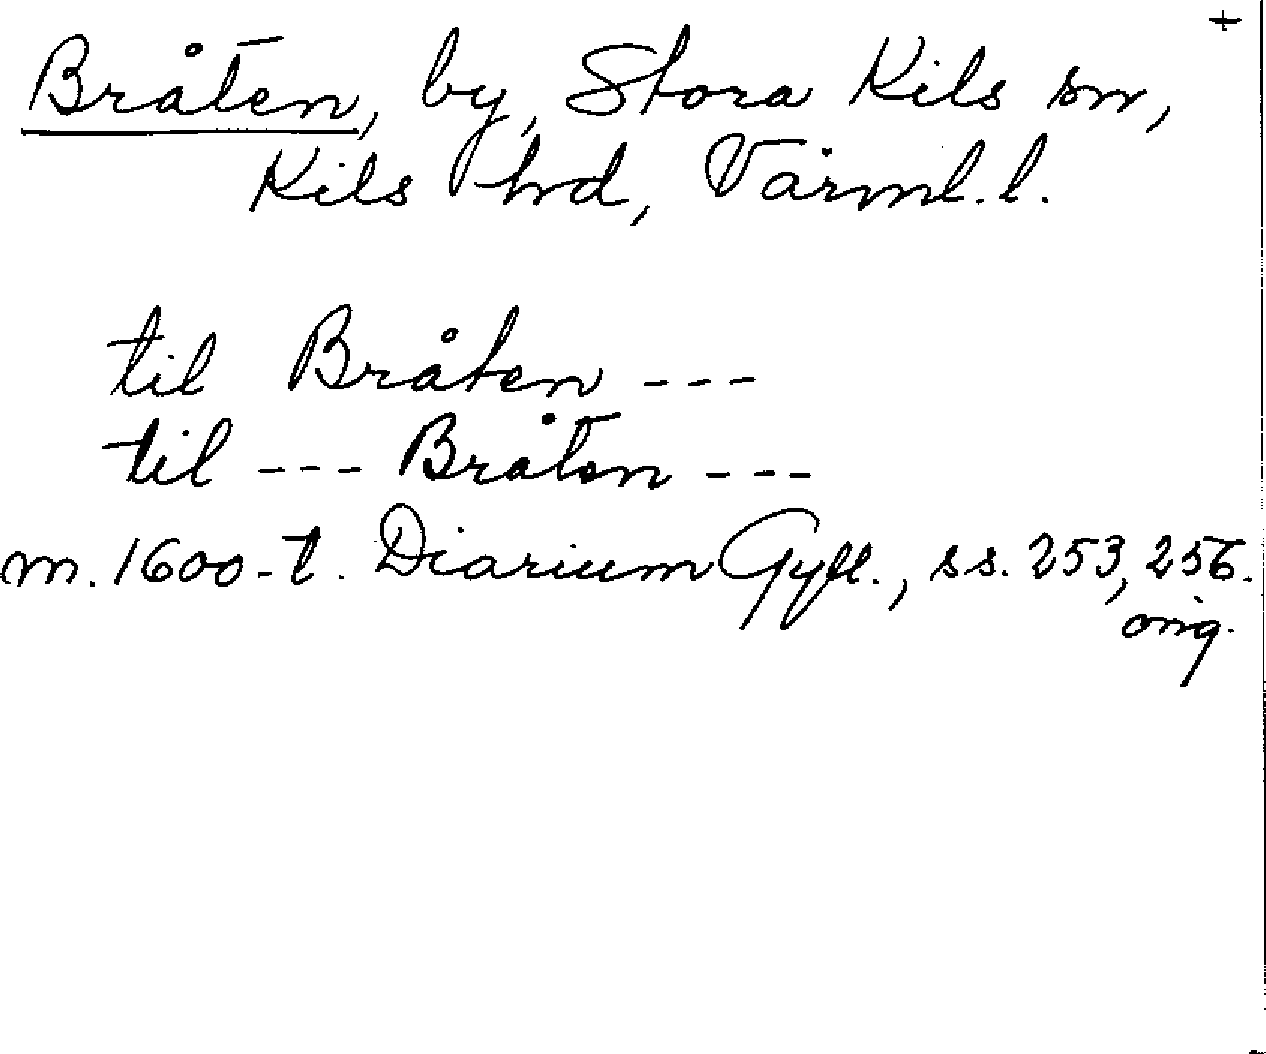 +
Bråten, by, Stora Kils sn,
Kils hd, Värml. l.
til Bråten ---
til --- Bråten ---
m. 1600-t. Diarium Gyll., ss. 253, 256.
orig.